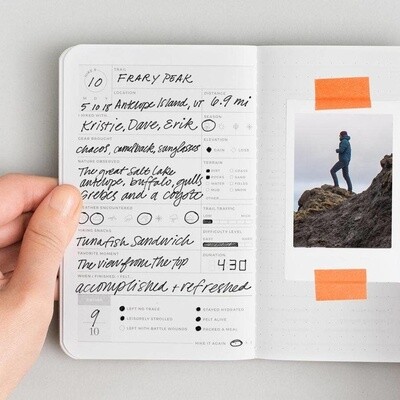 HIKE #
10
TRAIL
FRARY PEAK
LOCATION
DISTANCE
5 10 18 Antelope Island, UT 6.9 mi
I HIKED WITH
SEASON
Kristie, Dave, Erik
GEAR BROUGHT
chacos, camelback, sunglasses
NATURE OBSERVED
TERRAIN
The great Salt Lake
antelope, buffalo, gulls
Grebes and a coyote
WEATHER ENCOUNTERED
TRAIL TRAFFIC
HIKING SNACKS
DIFFICULTY LEVEL
Tunafish Sandwich
FAVORITE MOMENT
DURATION
The view from the top
4 3 0
WHEN I FINISHED I FELT
accomplished + refreshed
9
10
LEFT NO TRACE
STAYED HYDRATED
LEISURELY STROLLED
FELT ALIVE
LEFT WITH BATTLE WOUNDS
PACKED A MEAL
HIKE IT AGAIN